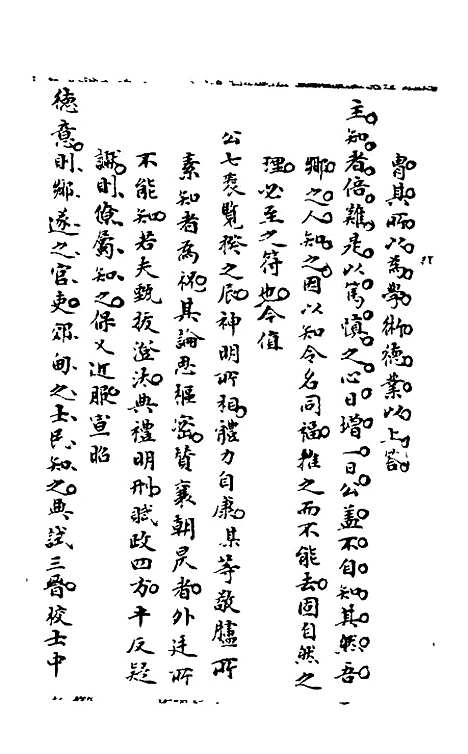 胄其所以為學術德業以上答
主知者倍難是以篤慎之心日增一日公蓋不自知其然吾
鄉之人知之因以知令名同福推之而不能去固自然之
理必至之符也今值
公七袠覽揆之辰神明所相體力自康某等敬臚所
素知者為祝其論思樞密贊襄朝昃者外廷所
不能知若夫甄拔澄汰典禮明刑賦政四方平反疑
讞則僚屬知之保乂近服宣昭
德意則鄉遂之官吏郊甸之士民知之典試三晉校士中